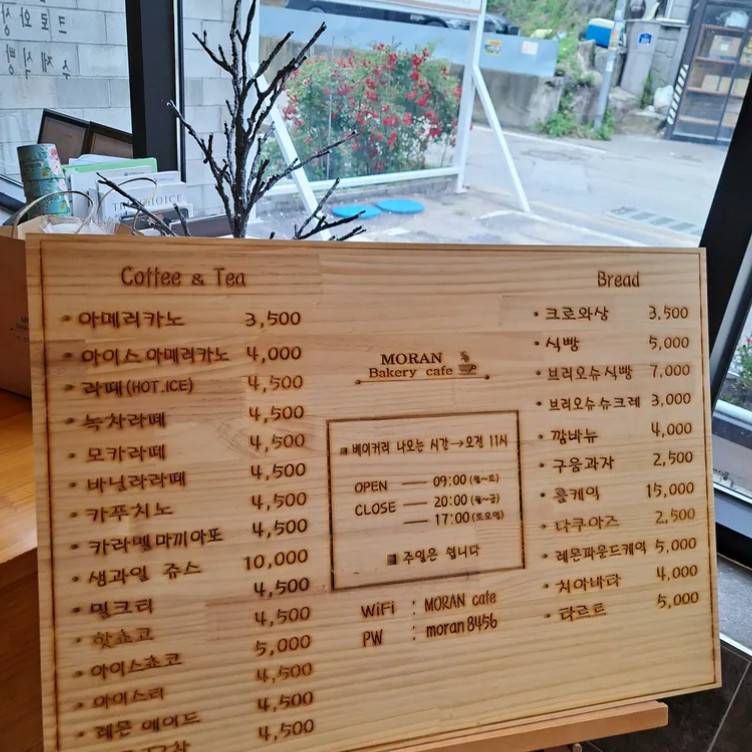 크로와상
수제식빵
Coffee & Tea
• 아메리카노 3,500
• 아이스 아메리카노 4,000
• 라떼(HOT.ICE) 4,500
• 녹차라떼 4,500
• 모카라떼 4,500
• 바닐라라떼 4,500
• 카푸치노 4,500
• 카라멜마끼아또 4,500
• 생과일 쥬스 10,000
• 밀크티 4,500
• 핫쵸코 4,500
• 아이스쵸코 5,000
• 아이스티 4,500
• 레몬 에이드 4,500
4,500
MORAN
Bakery cafe
■ 베이커리 나오는 시간→오전 11시
OPEN — 09:00 (월~토)
CLOSE — 20:00 (월~금)
— 17:00 (토요일)
■ 주일은 쉽니다
WiFi : MORAN cafe
PW : moran8456
Bread
• 크로와상 3,500
• 식빵 5,000
• 브리오슈식빵 7,000
• 브리오슈슈크레 3,000
• 깜바뉴 4,000
• 구움과자 2,500
• 롤케익 15,000
• 다쿠아즈 2,500
• 레몬파운드케익 5,000
• 치아바타 4,000
• 타르트 5,000